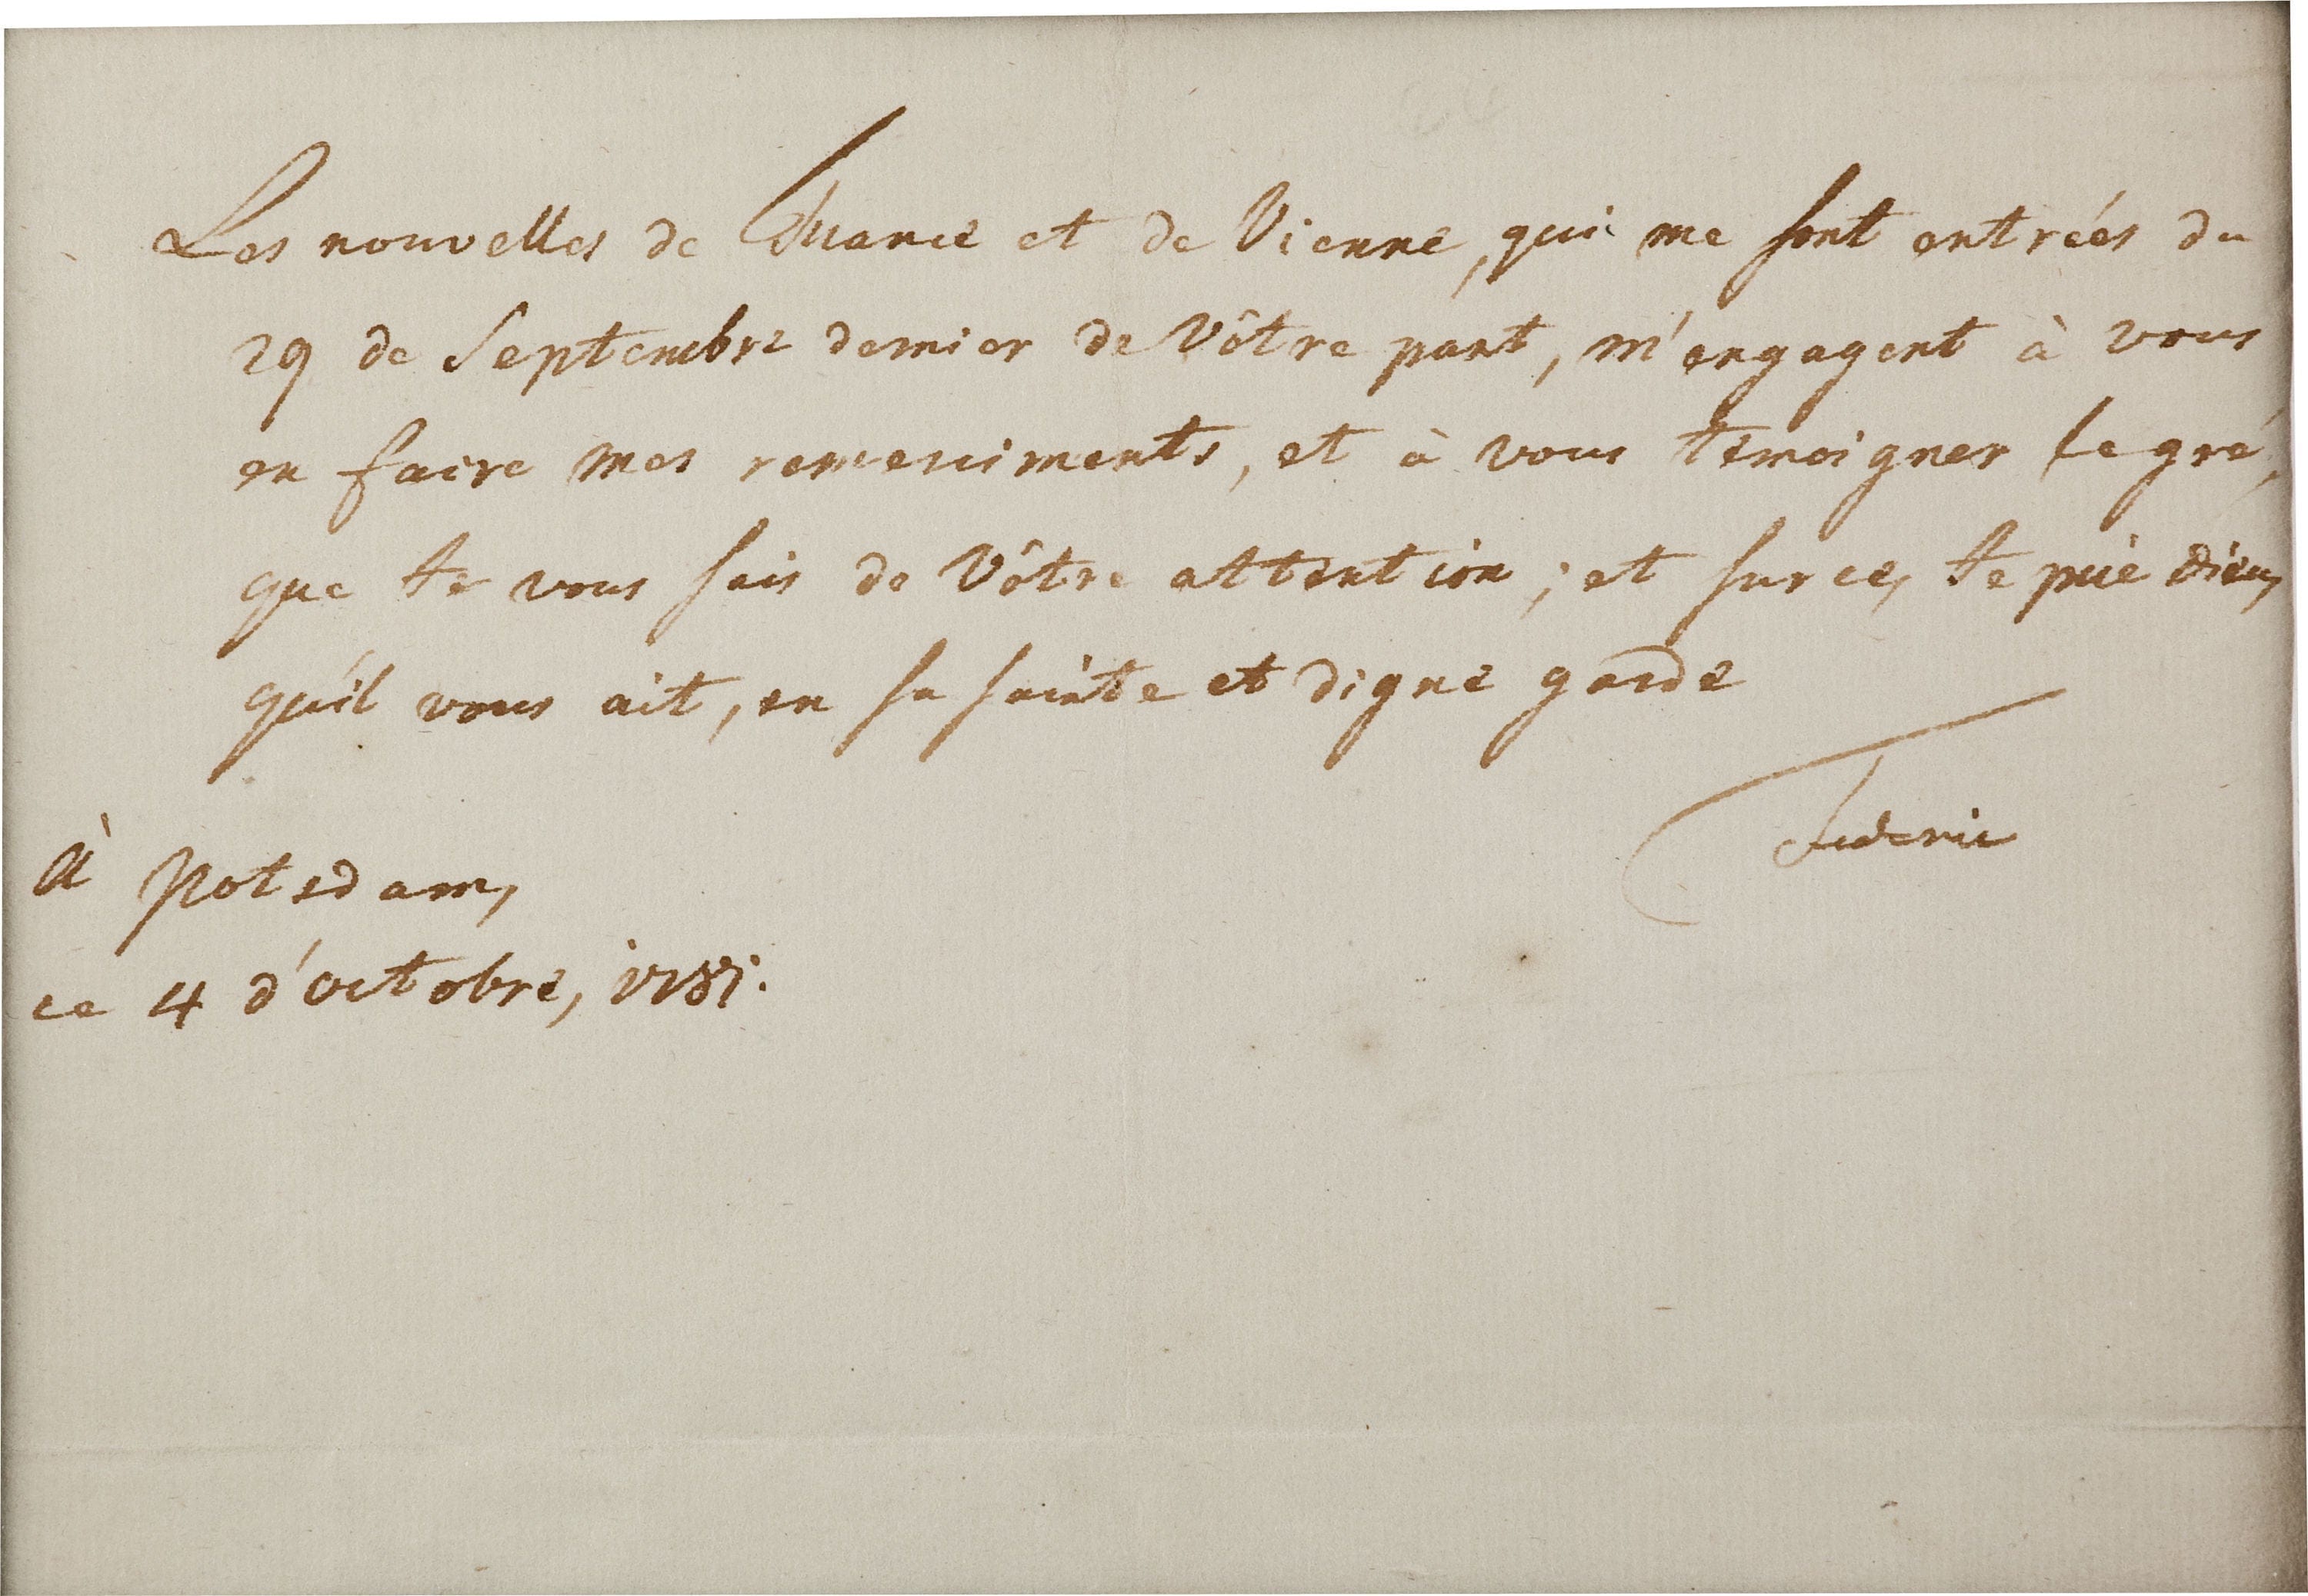 Les nouvelles de France et de Vienne, qui me sont entrées du
29 de Septembre dernier de Vôtre part, m'engagent à vous
en faire mes remerciments, et à vous témoigner le gré,
que Je vous sais de Vôtre attention; et sur ce, Je prie Dieu,
qu'il vous ait, en sa sainte et digne garde
Federic
À Potsdam,
ce 4 d'octobre, 1781.